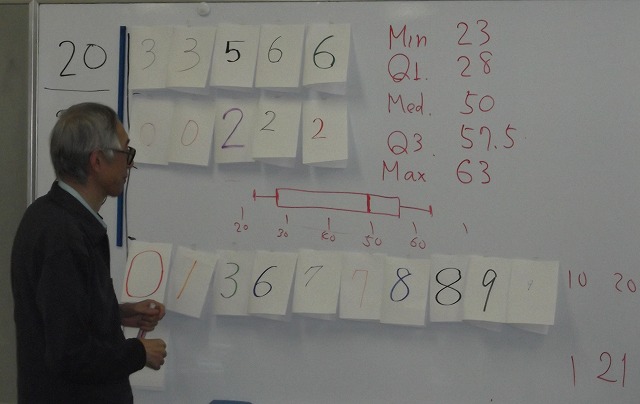 20
3 3 5 6 6
0 0 2 2 2
Min 23
Q1. 28
Med. 50
Q3. 57.5
Max 63
20 30 40 50 60
0 1 3 6 7 7 8 8 9
10 20
1 21